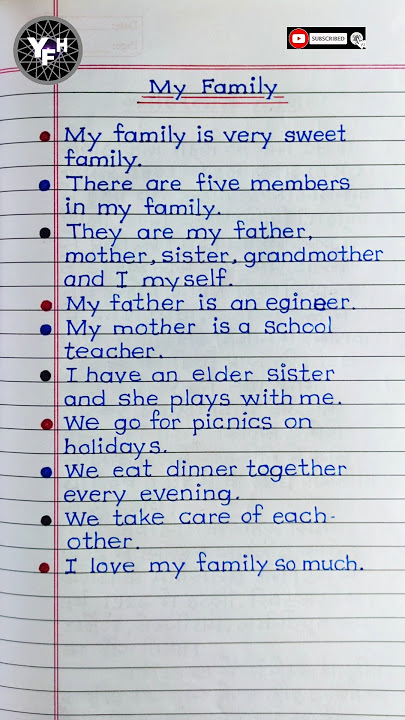 YFH
SUBSCRIBED
My Family
My family is very sweet
family.
There are five members
in my family.
They are my father,
mother, sister, grandmother
and I myself.
My father is an egineer.
My mother is a school
teacher.
I have an elder sister
and she plays with me.
We go for picnics on
holidays.
We eat dinner together
every evening.
We take care of each-
other.
I love my family so much.